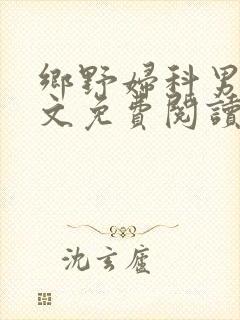 鄉野婦科男
文免費閱讀
沈玄廬